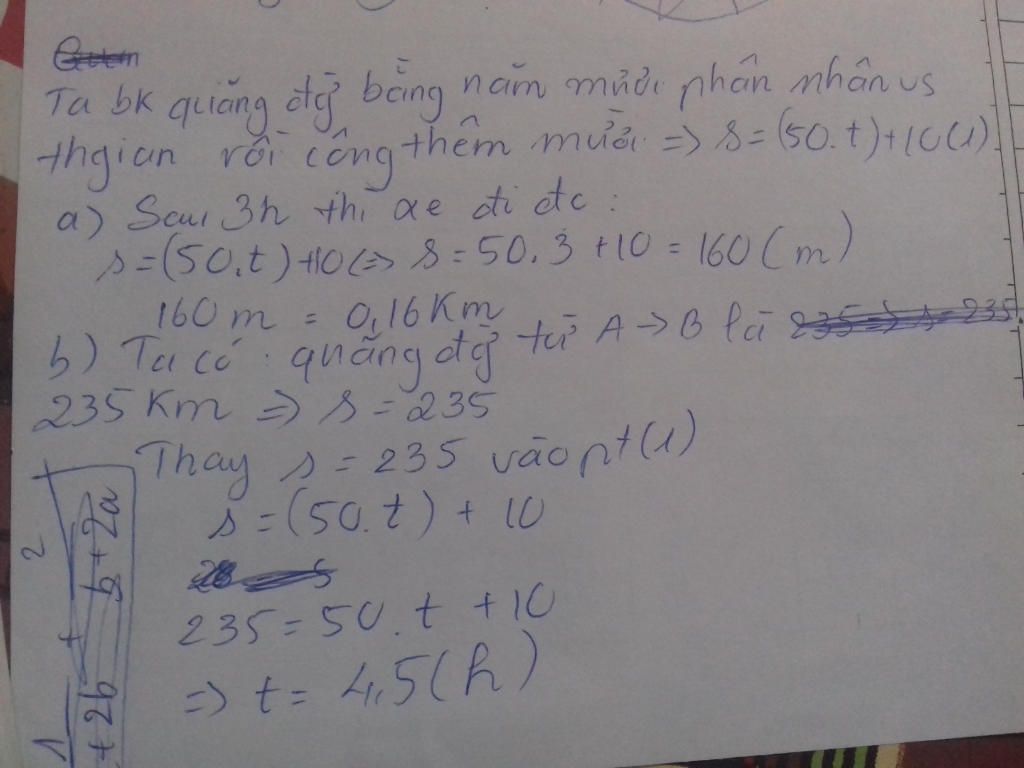 Ta bk quãng đg bằng năm mươi phần nhân vs
thgian rồi cộng thêm mười => s = (50.t)+10(1)
a) Sau 3h thì xe đi đc :
s=(50.t)+10<=> s = 50.3 +10 = 160 (m)
160 m = 0,16 Km
b) Ta có : quãng đg từ A -> B là
235 Km => s = 235
Thay s = 235 vào pt (1)
s = (50.t) + 10
235 = 50.t +10
=> t = 4,5 (h)
2
1
+ 2b
b + 2a